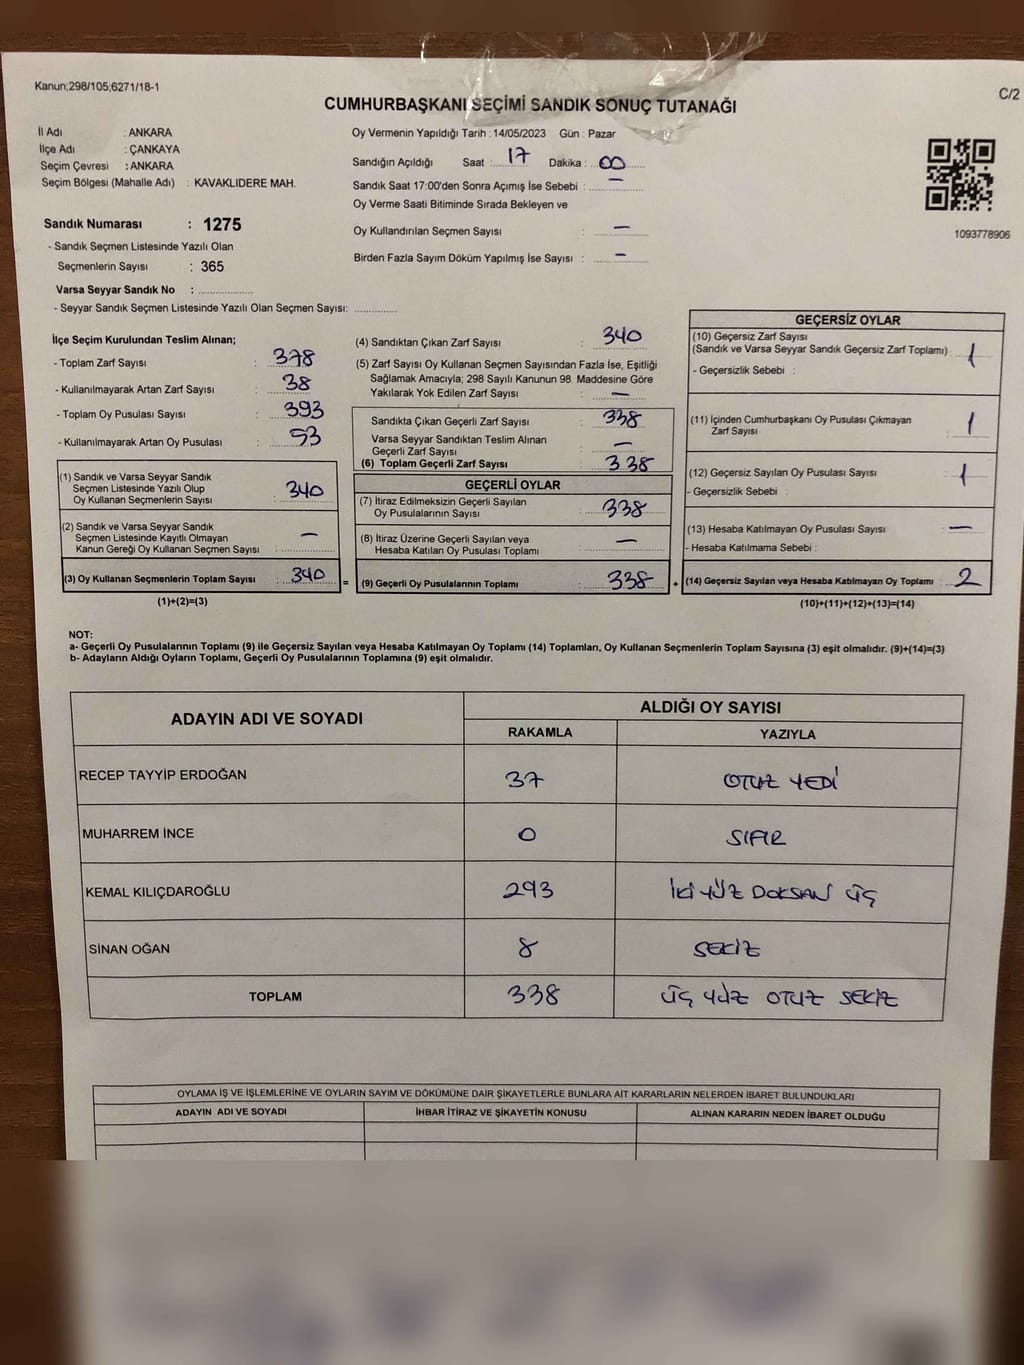 Kanun;298/105;6271/18-1
C/2
CUMHURBAŞKANI SEÇİMİ SANDIK SONUÇ TUTANAĞI
İl Adı : ANKARA
İlçe Adı : ÇANKAYA
Seçim Çevresi : ANKARA
Seçim Bölgesi (Mahalle Adı) : KAVAKLIDERE MAH.
Sandık Numarası : 1275
- Sandık Seçmen Listesinde Yazılı Olan
Seçmenlerin Sayısı : 365
Varsa Seyyar Sandık No : ..............
- Seyyar Sandık Seçmen Listesinde Yazılı Olan Seçmen Sayısı: ..............
Oy Vermenin Yapıldığı Tarih : 14/05/2023 Gün : Pazar
Sandığın Açıldığı Saat : 17 Dakika : 00
Sandık Saat 17:00'den Sonra Açımış İse Sebebi : —
Oy Verme Saati Bitiminde Sırada Bekleyen ve
Oy Kullandırılan Seçmen Sayısı : —
Birden Fazla Sayım Döküm Yapılmış İse Sayısı : —
1093778906
İlçe Seçim Kurulundan Teslim Alınan;
- Toplam Zarf Sayısı : 378
- Kullanılmayarak Artan Zarf Sayısı : 38
- Toplam Oy Pusulası Sayısı : 393
- Kullanılmayarak Artan Oy Pusulası : 53
(1) Sandık ve Varsa Seyyar Sandık
Seçmen Listesinde Yazılı Olup
Oy Kullanan Seçmenlerin Sayısı : 340
(2) Sandık ve Varsa Seyyar Sandık
Seçmen Listesinde Kayıtlı Olmayan
Kanun Gereği Oy Kullanan Seçmen Sayısı : —
(3) Oy Kullanan Seçmenlerin Toplam Sayısı : 340 =
(1)+(2)=(3)
(4) Sandıktan Çıkan Zarf Sayısı : 340
(5) Zarf Sayısı Oy Kullanan Seçmen Sayısından Fazla İse, Eşitliği
Sağlamak Amacıyla; 298 Sayılı Kanunun 98. Maddesine Göre
Yakılarak Yok Edilen Zarf Sayısı : —
Sandıkta Çıkan Geçerli Zarf Sayısı : 338
Varsa Seyyar Sandıktan Teslim Alınan
Geçerli Zarf Sayısı : —
(6) Toplam Geçerli Zarf Sayısı : 338
GEÇERLİ OYLAR
(7) İtiraz Edilmeksizin Geçerli Sayılan
Oy Pusulalarının Sayısı : 338
(8) İtiraz Üzerine Geçerli Sayılan veya
Hesaba Katılan Oy Pusulası Toplamı : —
(9) Geçerli Oy Pusulalarının Toplamı : 338 +
GEÇERSİZ OYLAR
(10) Geçersiz Zarf Sayısı
(Sandık ve Varsa Seyyar Sandık Geçersiz Zarf Toplamı) : 1
- Geçersizlik Sebebi :
(11) İçinden Cumhurbaşkanı Oy Pusulası Çıkmayan
Zarf Sayısı : 1
(12) Geçersiz Sayılan Oy Pusulası Sayısı : 1
- Geçersizlik Sebebi :
(13) Hesaba Katılmayan Oy Pusulası Sayısı : —
- Hesaba Katılmama Sebebi :
(14) Geçersiz Sayılan veya Hesaba Katılmayan Oy Toplamı : 2
(10)+(11)+(12)+(13)=(14)
NOT:
a- Geçerli Oy Pusulalarının Toplamı (9) ile Geçersiz Sayılan veya Hesaba Katılmayan Oy Toplamı (14) Toplamları, Oy Kullanan Seçmenlerin Toplam Sayısına (3) eşit olmalıdır. (9)+(14)=(3)
b- Adayların Aldığı Oyların Toplamı, Geçerli Oy Pusulalarının Toplamına (9) eşit olmalıdır.
ADAYIN ADI VE SOYADI ALDIĞI OY SAYISI
RAKAMLA YAZIYLA
RECEP TAYYİP ERDOĞAN 37 OTUZ YEDİ
MUHARREM İNCE 0 SIFIR
KEMAL KILIÇDAROĞLU 293 İKİ YÜZ DOKSAN ÜÇ
SİNAN OĞAN 8 SEKİZ
TOPLAM 338 ÜÇ YÜZ OTUZ SEKİZ
OYLAMA İŞ VE İŞLEMLERİNE VE OYLARIN SAYIM VE DÖKÜMÜNE DAİR ŞİKAYETLERLE BUNLARA AİT KARARLARIN NELERDEN İBARET BULUNDUKLARI
ADAYIN ADI VE SOYADI İHBAR İTİRAZ VE ŞİKAYETİN KONUSU ALINAN KARARIN NEDEN İBARET OLDUĞU